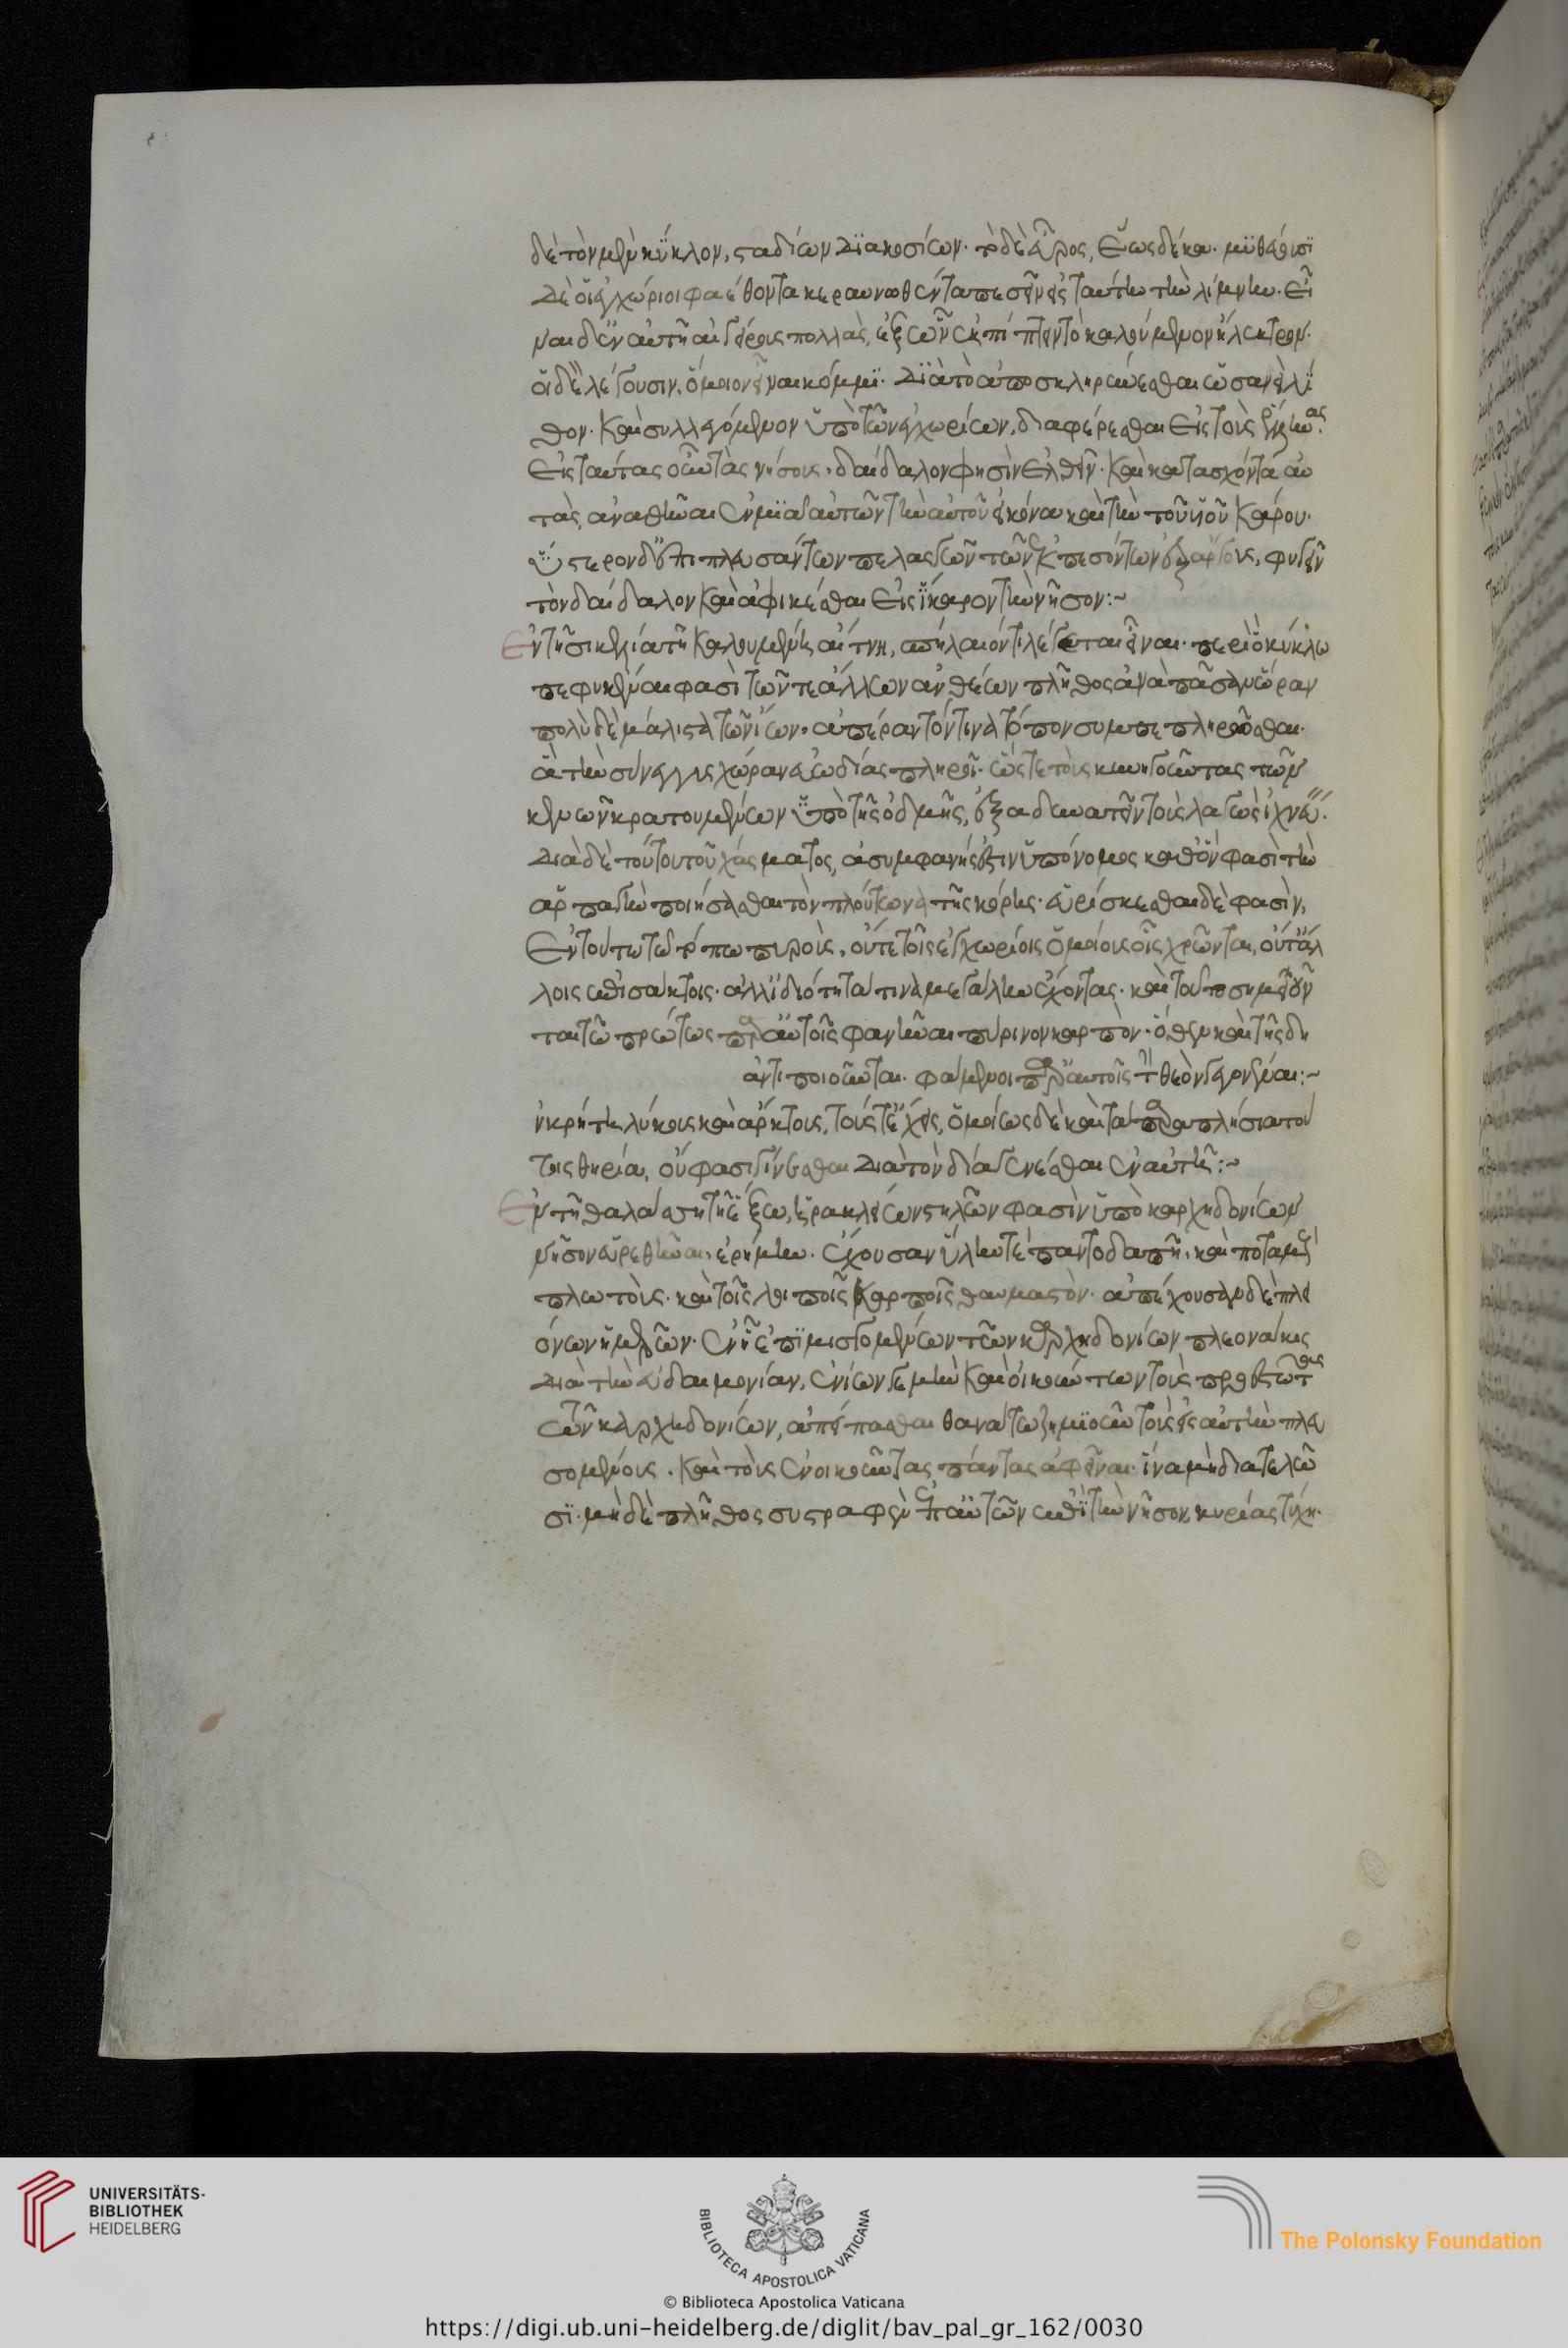 δὲ τὸν μὲν κύκλον, σταδίων διακοσίων· τὸ δὲ εὖρος, ἕως δέκα. μυθεύουσι
δὲ οἱ ἐγχώριοι φαέθοντα κεραυνωθέντα πεσεῖν εἰς ταύτην τὴν λίμνην. εἶ
ναι δ' ἐν αὐτῇ αἰγείρους πολλὰς, ἐξ ὧν ἐκπίπτειν τὸ καλούμενον ἤλεκτρον.
οἱ δὲ λέγουσιν, ὅμοιον εἶναι κόμμι. διὰ τὸ ἀποσκληρύνεσθαι ὡσανεὶ λί
θον. καὶ συλλεγόμενον ὑπὸ τῶν ἐγχωρίων, διαφέρεσθαι εἰς τοὺς ἕλληνας.
εἰς ταύτας οὖν τὰς νήσους, δαίδαλον φησὶν ἐλθεῖν. καὶ κατασχόντα αὐ
τὰς, ἀναθεῖναι ἐν μιᾷ αὐτῶν τὴν αὐτοῦ εἰκόνα καὶ τὴν τοῦ υἱοῦ ἰκάρου.
ὕστερον δ' ἐπιπλευσάντων πελασγῶν τῶν ἐκπεσόντων ἐξ ἄργους, φυγεῖν
τὸν δαίδαλον καὶ ἀφικέσθαι εἰς ἴκαρον τὴν νῆσον:~
Ἐν τῇ σικελίᾳ τῇ καλουμένῃ αἴτνη, σπήλαιόν τι λέγεται εἶναι. περὶ ὃ κύκλω
πεφυκέναι φασὶ τῶν τε ἄλλων ἀνθέων πλῆθος ἀνὰ πᾶσαν ὥραν
πολὺ δὲ μάλιστα τῶν ἴων. ἀπέραντόν τινα τόπον συμπεπληρῶσθαι.
ἃ τὴν σύνεγγυς χώραν εὐωδίας πληροῖ. ὥστε τοὺς κυνηγοῦντας τῶν
κυνῶν κρατουμένων ὑπὸ τῆς ὀδμῆς, ἐξαδυνατεῖν τοὺς λαγὼς ἰχνεύειν.
διὰ δὲ τούτου τοῦ χάσματος, ἀσυμφανής ἐστιν ὑπόνομος καθ' ὃν φασὶ τὴν
ἁρπαγὴν ποιήσασθαι τὸν πλούτωνα τῆς κόρης. εὑρίσκεσθαι δὲ φασὶν,
ἐν τούτω τῶ τόπω πυροὺς, οὔτε τοῖς ἐγχωρίοις ὁμοίους οἷς χρῶνται, οὔτ' ἄλ
λοις ἐπεισάκτοις. ἀλλ' ἰδιότητά τινα μεγάλην ἔχοντας. καὶ τούτω σημειοῦν
ται τὸ πρώτως παρ' αὑτοῖς φανῆναι πύρινον καρπὸν. ὅθεν καὶ τῆς δη
ἀντιποιοῦνται. φάμενοι παρ' αὑτοῖς τὴν θεὸν γεγονέναι:~
ἐν κρήτη λύκους καὶ ἄρκτους, τούς τε ἔχεις, ὁμοίως δὲ καὶ τὰ παραπλήσια τού
τοις θηρία, οὔ φασι γίνεσθαι διὰ τὸν δία γενέσθαι ἐν αὐτῇ:~
Ἐν τῇ θαλάσσῃ τῇ ἔξω, ἡρακλείων στηλῶν φασὶν ὑπὸ καρχηδονίων
νῆσον εὑρεθῆναι, ἐρήμην. ἔχουσαν ὕλην τὲ παντοδαπῆ, καὶ ποταμοὺς
πλωτοὺς. καὶ τοῖς λοιποῖς καρποῖς θαυμαστὸν. ἀπέχουσαν δὲ πλει
όνων ἡμερῶν. ἐν ᾗ ἐπιμισγομένων τῶν καρχηδονίων πλεονάκις
διὰ τὴν εὐδαιμονίαν, ἐνίων γε μὴν καὶ οἰκούντων τοὺς προεστῶτας
τῶν καρχηδονίων, ἀπείπασθαι θανάτω ζημιοῦν τοὺς εἰς αὐτὴν πλευ
σομένους. καὶ τοὺς ἐνοικοῦντας πάντας ἀφεῖναι. ἵνα μὴ διατελῶ
σι. μηδὲ πλῆθος συστραφὲν ἐπ' αὐτῶν ἐπὶ τὴν νῆσον, κυρίας τύχῃ.
UNIVERSITÄTS-
BIBLIOTHEK
HEIDELBERG
BIBLIOTECA APOSTOLICA VATICANA
The Polonsky Foundation
© Biblioteca Apostolica Vaticana
https://digi.ub.uni-heidelberg.de/diglit/bav_pal_gr_162/0030